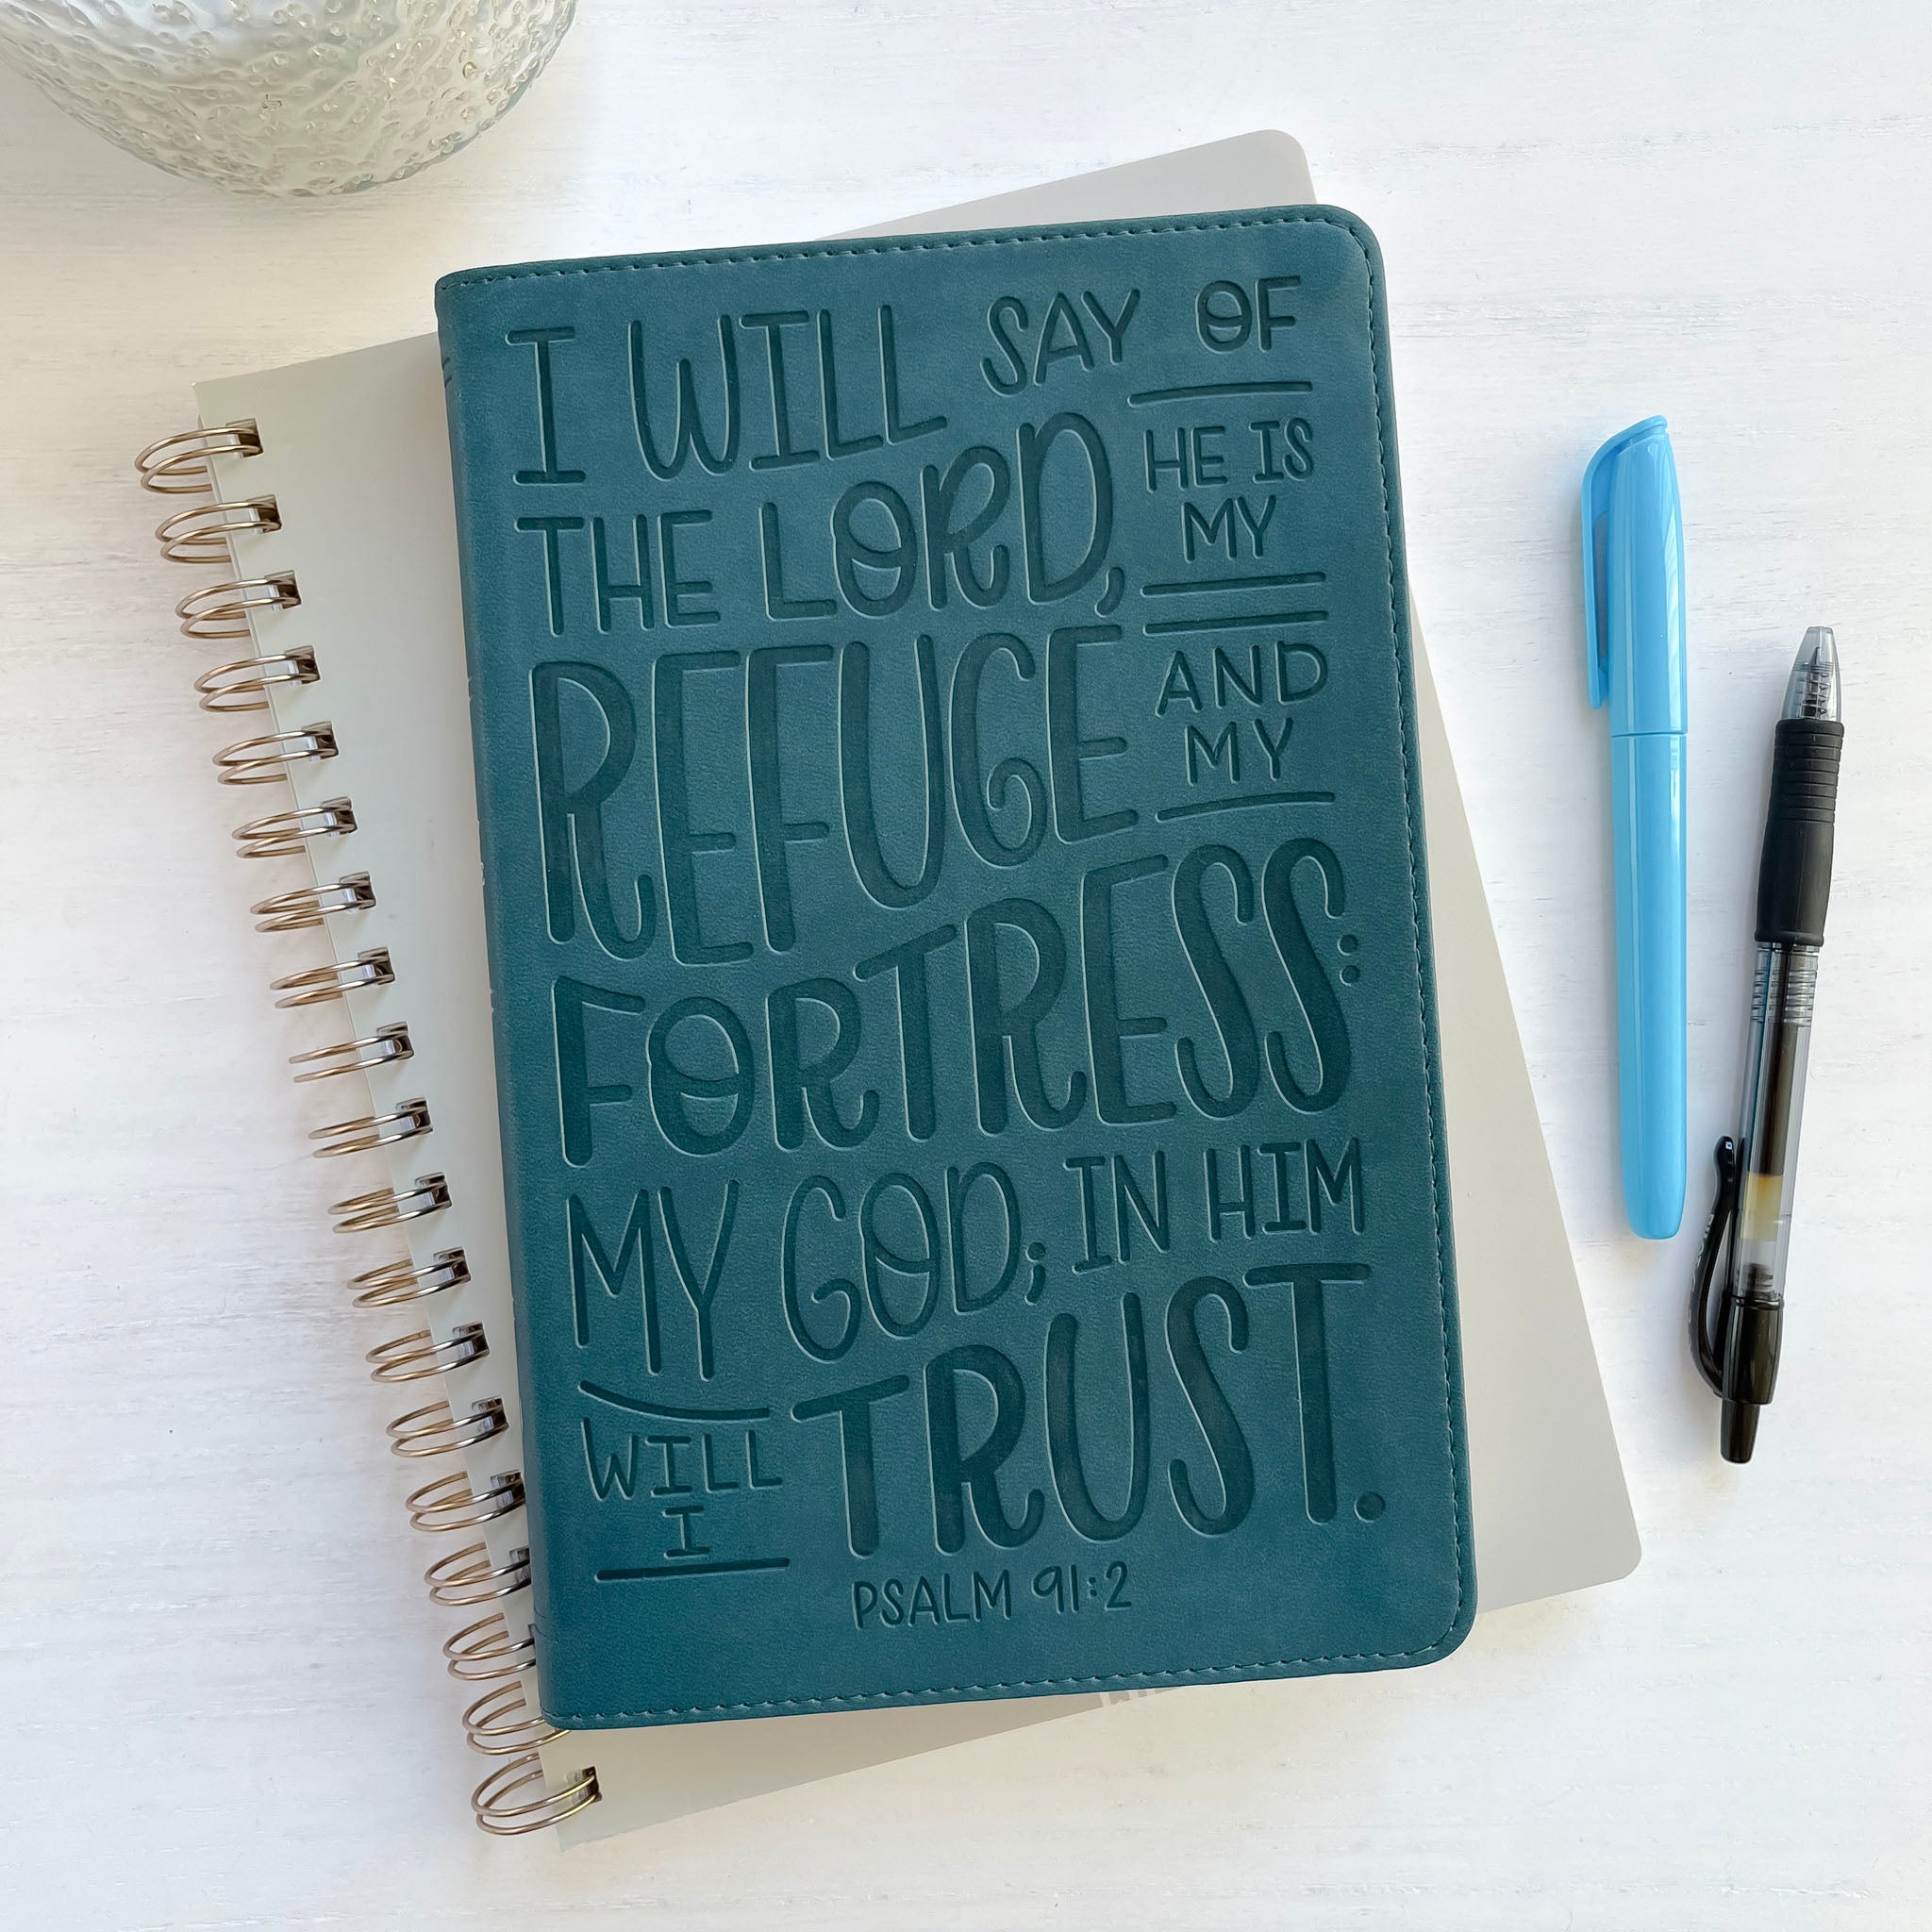 I WILL SAY OF
THE LORD,
HE IS
MY
REFUGE
AND
MY
FORTRESS:
MY GOD; IN HIM
WILL
I
TRUST.
PSALM 91:2